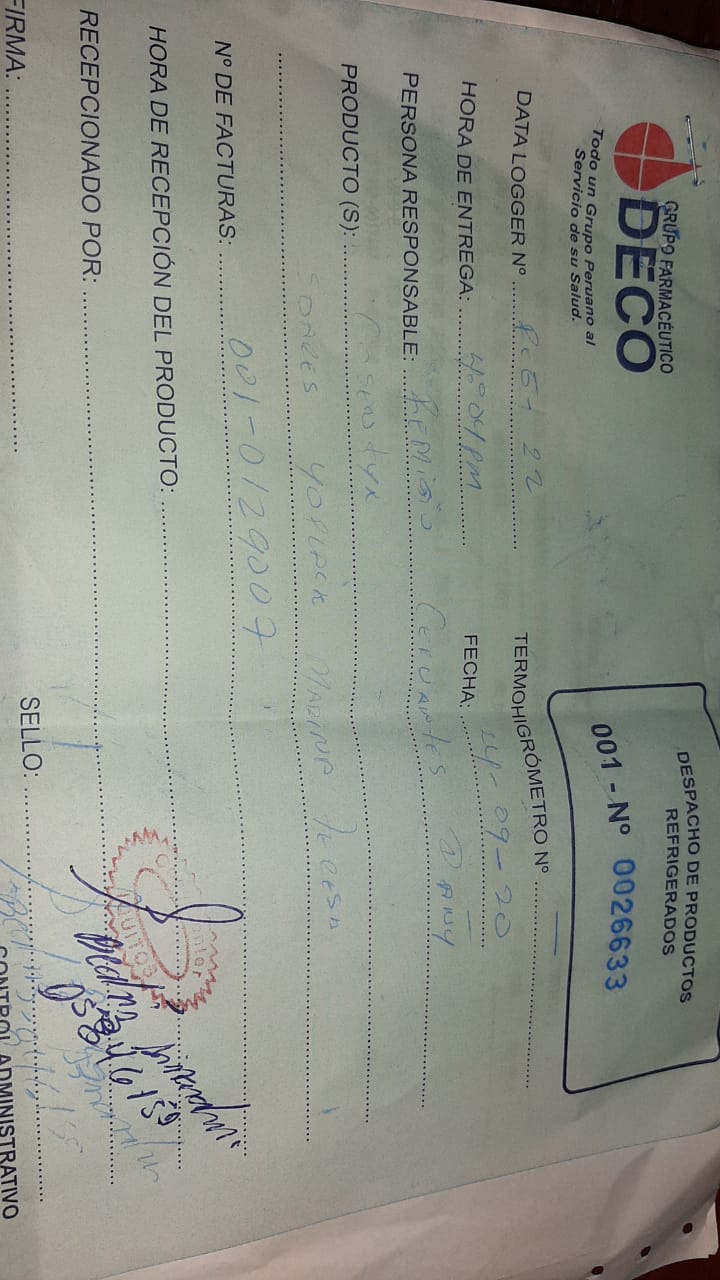 GRUPO FARMACÉUTICO
DECO
Todo un Grupo Peruano al
Servicio de su Salud.
DESPACHO DE PRODUCTOS
REFRIGERADOS
001 - Nº 0026633
DATA LOGGER Nº TERMOHIGRÓMETRO Nº —
HORA DE ENTREGA: 4:04 pm FECHA: 24-09-20
PERSONA RESPONSABLE: REMIGIO CERVANTES DANY
PRODUCTO (S):
YOPLACK MARINA TERESA
Nº DE FACTURAS: 001-0129007
HORA DE RECEPCIÓN DEL PRODUCTO:
RECEPCIONADO POR:
FIRMA: SELLO:
CONTROL ADMINISTRATIVO